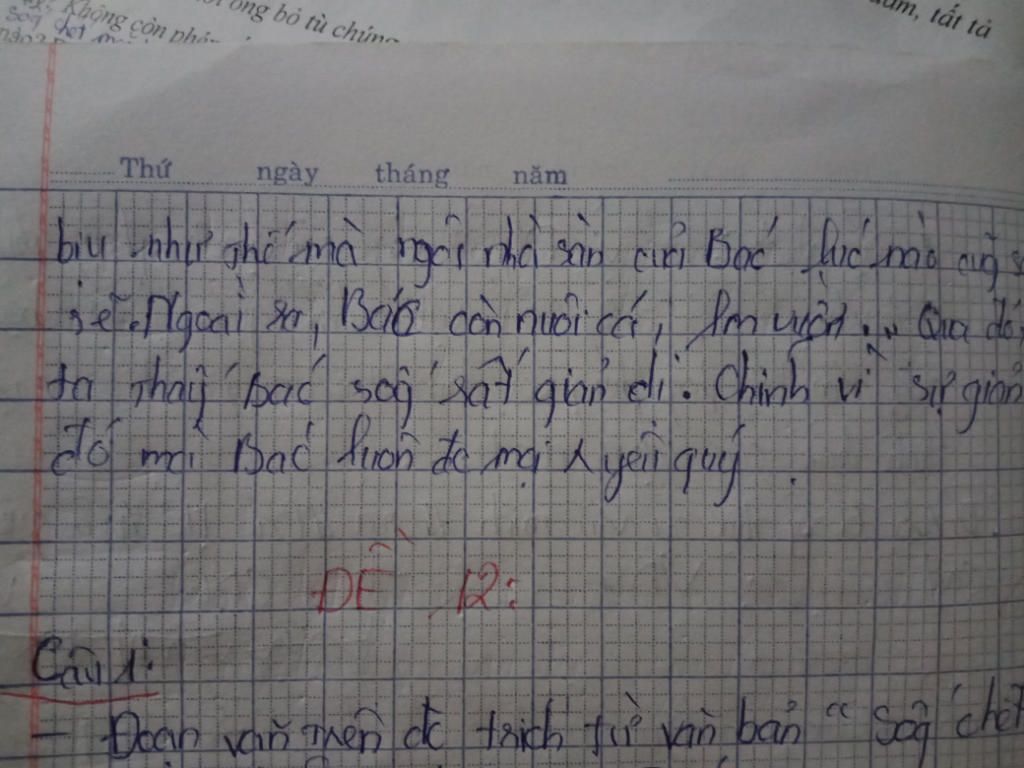 Không còn phép
ông bỏ tù chúng
tất tả
sog chết
Thứ ngày tháng năm
như thế mà ngôi nhà sàn của Bác lúc nào cũg
sẽ. Ngoài ra, Bác còn nuôi cá, làm vườn... Qua đó,
ta thấy Bác sog rất giản dị. Chính vì sự giản
đó mà Bác luôn đc mọi yêu quý.
ĐỀ 12:
Câu 1:
- Đoạn văn trên đc trích từ văn bản " Sog chết